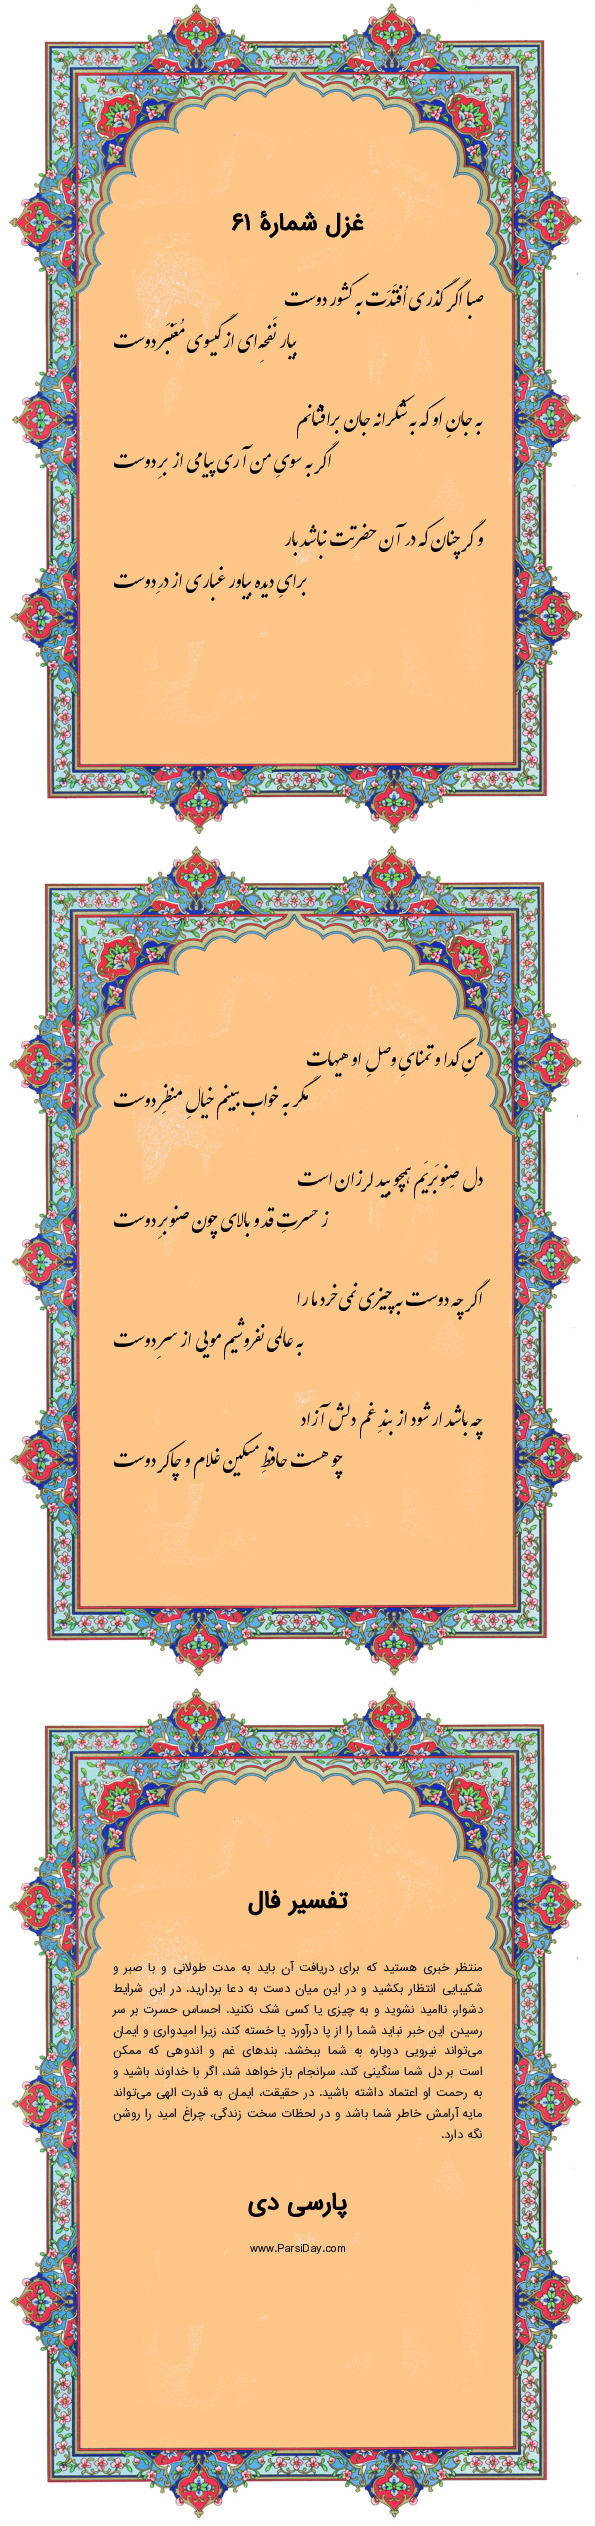 غزل شمارهٔ ۶۱
صبا اگر گذری اُفتَدَت به کشور دوست
بیار نَفحِه‌ای از گیسوی مُعَنبَر دوست
به جانِ او که به شکرانه جان برافشانم
اگر به سویِ من آری پیامی از برِ دوست
و گر چنان که در آن حضرتت نباشد بار
برایِ دیده بیاور غباری از درِ دوست
منِ گدا و تمنایِ وصلِ او هیهات
مگر به خواب ببینم خیالِ منظرِ دوست
دل صِنوبَریَم همچو بید لرزان است
ز حسرتِ قد و بالای چون صنوبرِ دوست
اگر چه دوست به چیزی نمی‌خرد ما را
به عالمی نفروشیم مویی از سرِ دوست
چه باشد ار شود از بندِ غم دلش آزاد
چو هست حافظِ مسکین غلام و چاکر دوست
تفسیر فال
منتظر خبری هستید که برای دریافت آن باید به مدت طولانی و با صبر و
شکیبایی انتظار بکشید و در این میان دست به دعا بردارید. در این شرایط
دشوار، ناامید نشوید و به چیزی یا کسی شک نکنید. احساس حسرت بر سر
رسیدن این خبر نباید شما را از پا درآورد یا خسته کند، زیرا امیدواری و ایمان
می‌تواند نیرویی دوباره به شما ببخشد. بندهای غم و اندوهی که ممکن
است بر دل شما سنگینی کند، سرانجام باز خواهد شد، اگر با خداوند باشید و
به رحمت او اعتماد داشته باشید. در حقیقت، ایمان به قدرت الهی می‌تواند
مایه آرامش خاطر شما باشد و در لحظات سخت زندگی، چراغ امید را روشن
نگه دارد.
پارسی دی
www.ParsiDay.com